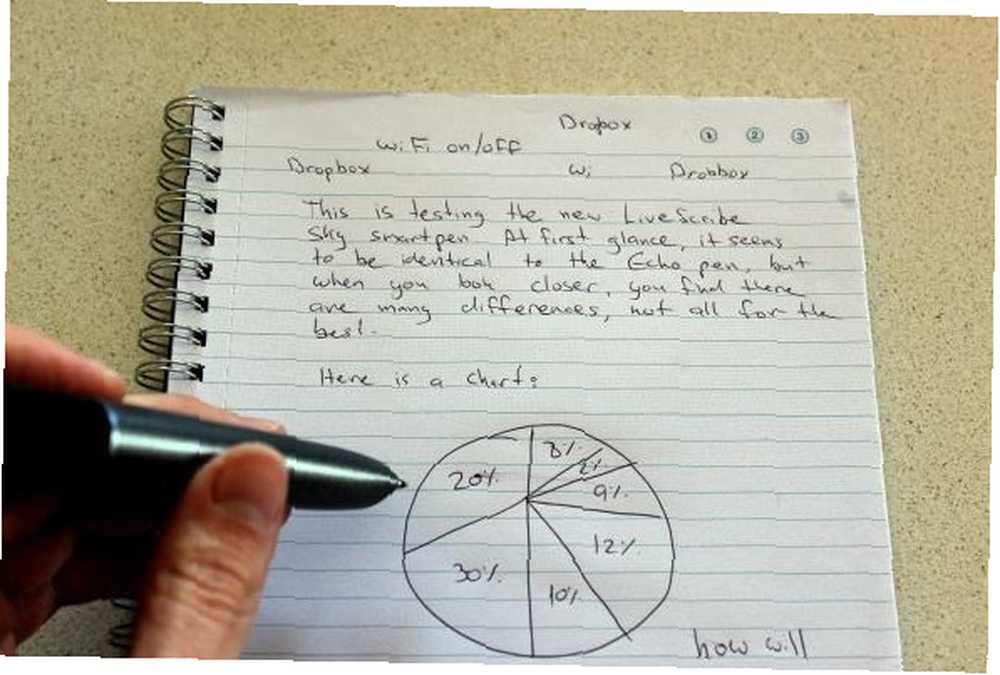 Dropbox
① ② ③
WiFi on/off
Dropbox Wi Drobbox
This is testing the new LiveScribe
Sky smartpen. At first glance, it seems
to be identical to the Echo pen, but
when you look closer, you find there
are many differences, not all for the
best.
Here is a chart:
8%
2%
20% 9%
12%
30% 10%
how will